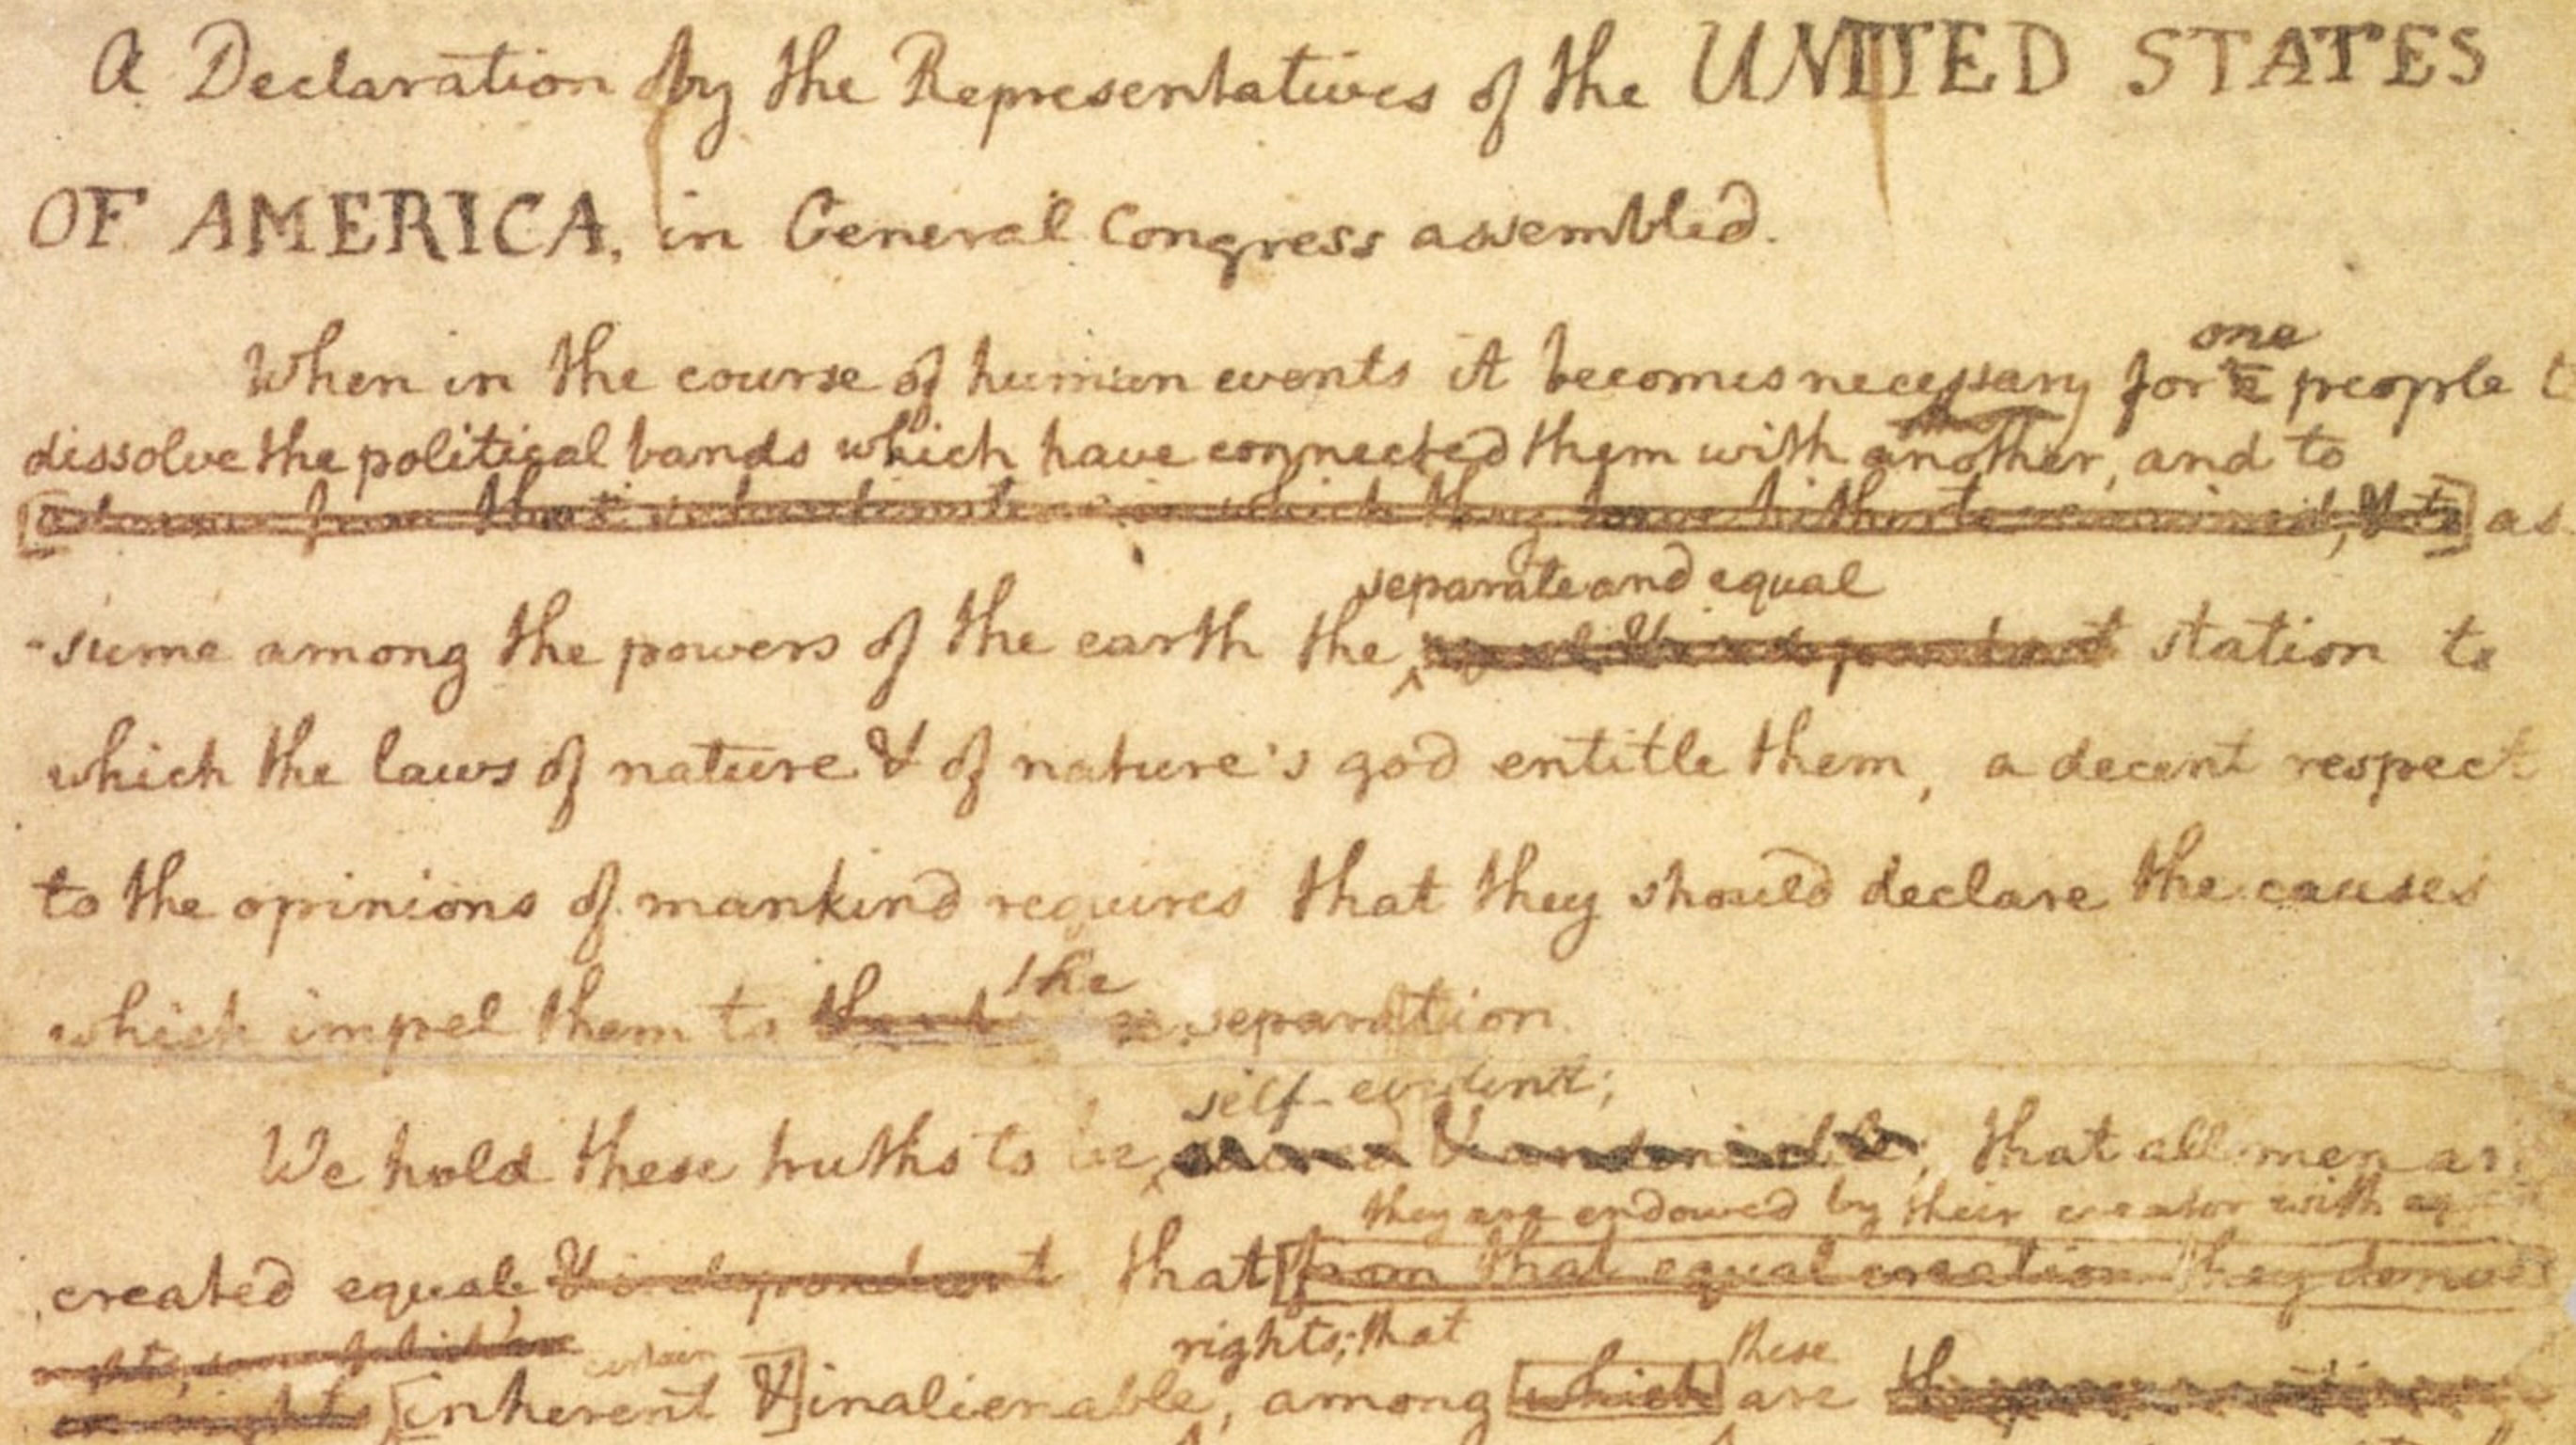 A Declaration by the Representatives of the UNITED STATES
OF AMERICA, in General Congress assembled.
one
When in the course of human events it becomes necessary for people
dissolve the political bands which have connected them with another, and to
which they have hitherto as
separate and equal
-sume among the powers of the earth the station to
which the laws of nature & of nature's god entitle them, a decent respect
to the opinions of mankind requires that they should declare the causes
the
which impel them to separation
self-evident;
We hold these truths to be that all men ar
they are endowed by their creator with
created equal & independent that [from that equal creation they
rights; that
certain these
[inherent &] inalienable, among which are